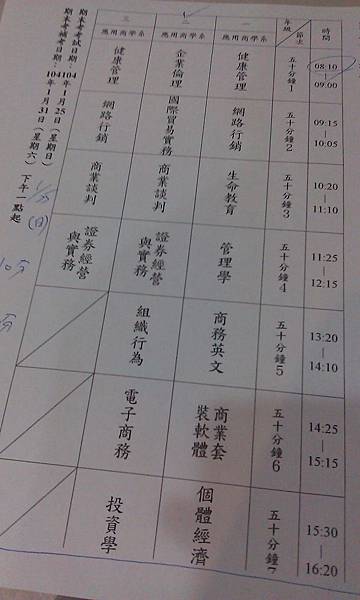 時間
08:10
|
09:00
09:15
|
10:05
10:20
|
11:10
11:25
|
12:15
13:20
|
14:10
14:25
|
15:15
15:30
|
16:20
節次
年級
五十分鐘1
五十分鐘2
五十分鐘3
五十分鐘4
五十分鐘5
五十分鐘6
五十分鐘7
一
應用商學系
健康管理
網路行銷
生命教育
管理學
商務英文
商業套
裝軟體
個體經濟
二
應用商學系
企業倫理
國際貿易實務
商業談判
證券經營
與實務
組織行為
電子商務
投資學
三
應用商學系
健康管理
網路行銷
商業談判
證券經營
與實務
期末考考試日期：104年1月25日（星期日）
期末考補考日期：104年1月31日（星期六）下午一點起
1/25(日)